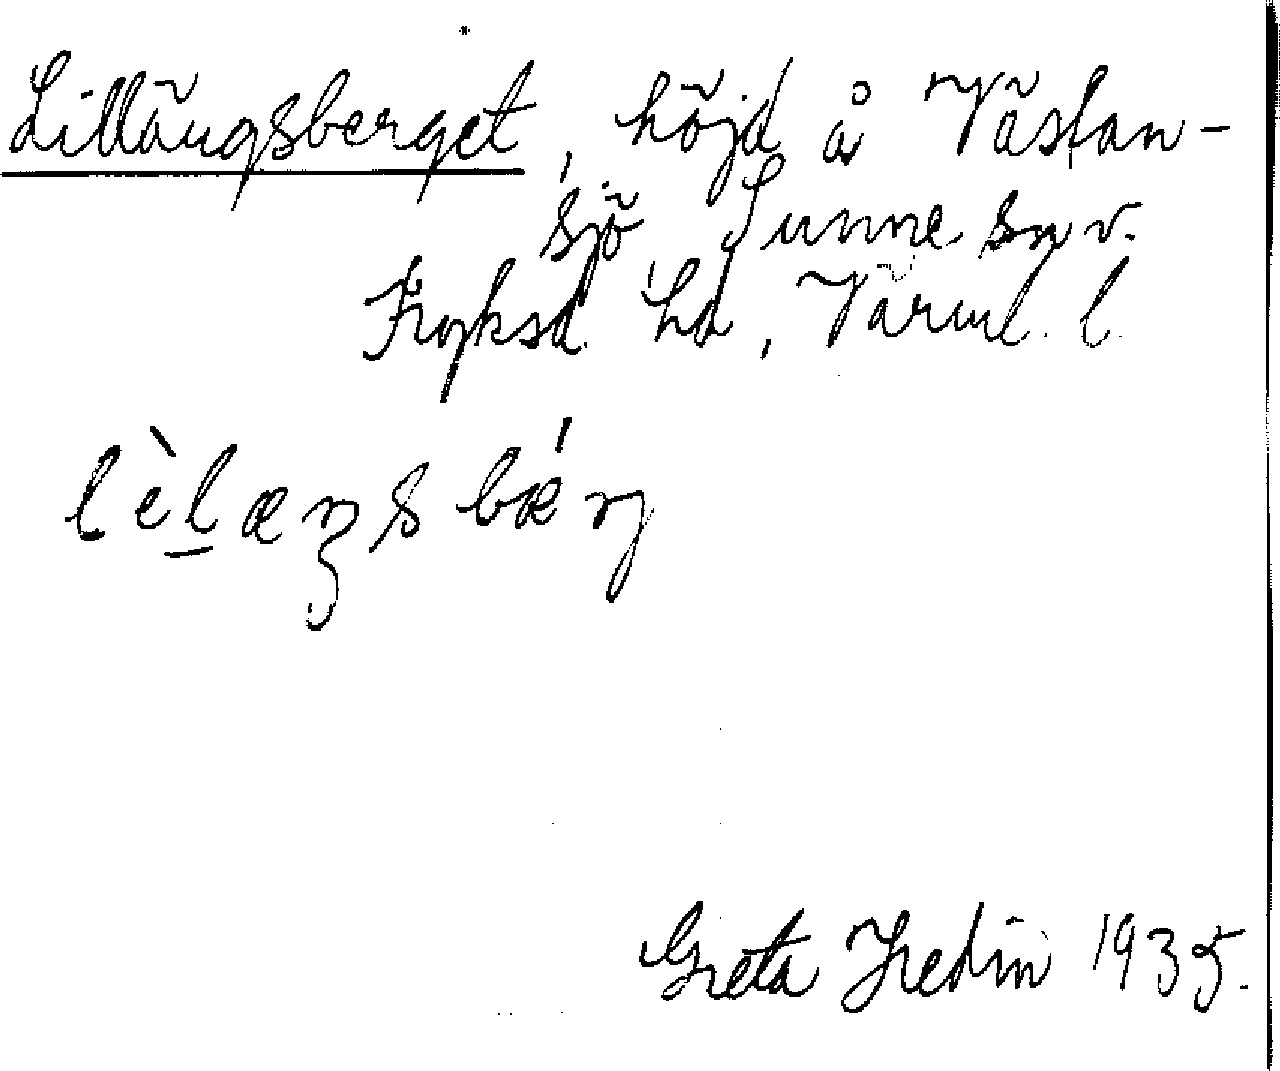 Lillängsberget, höjd å Västan-
sjö Sunne sn v.
Fryksd. hd, Värml. l.
lèl̠æŋsbǽrj
Greta Hedin 1935.